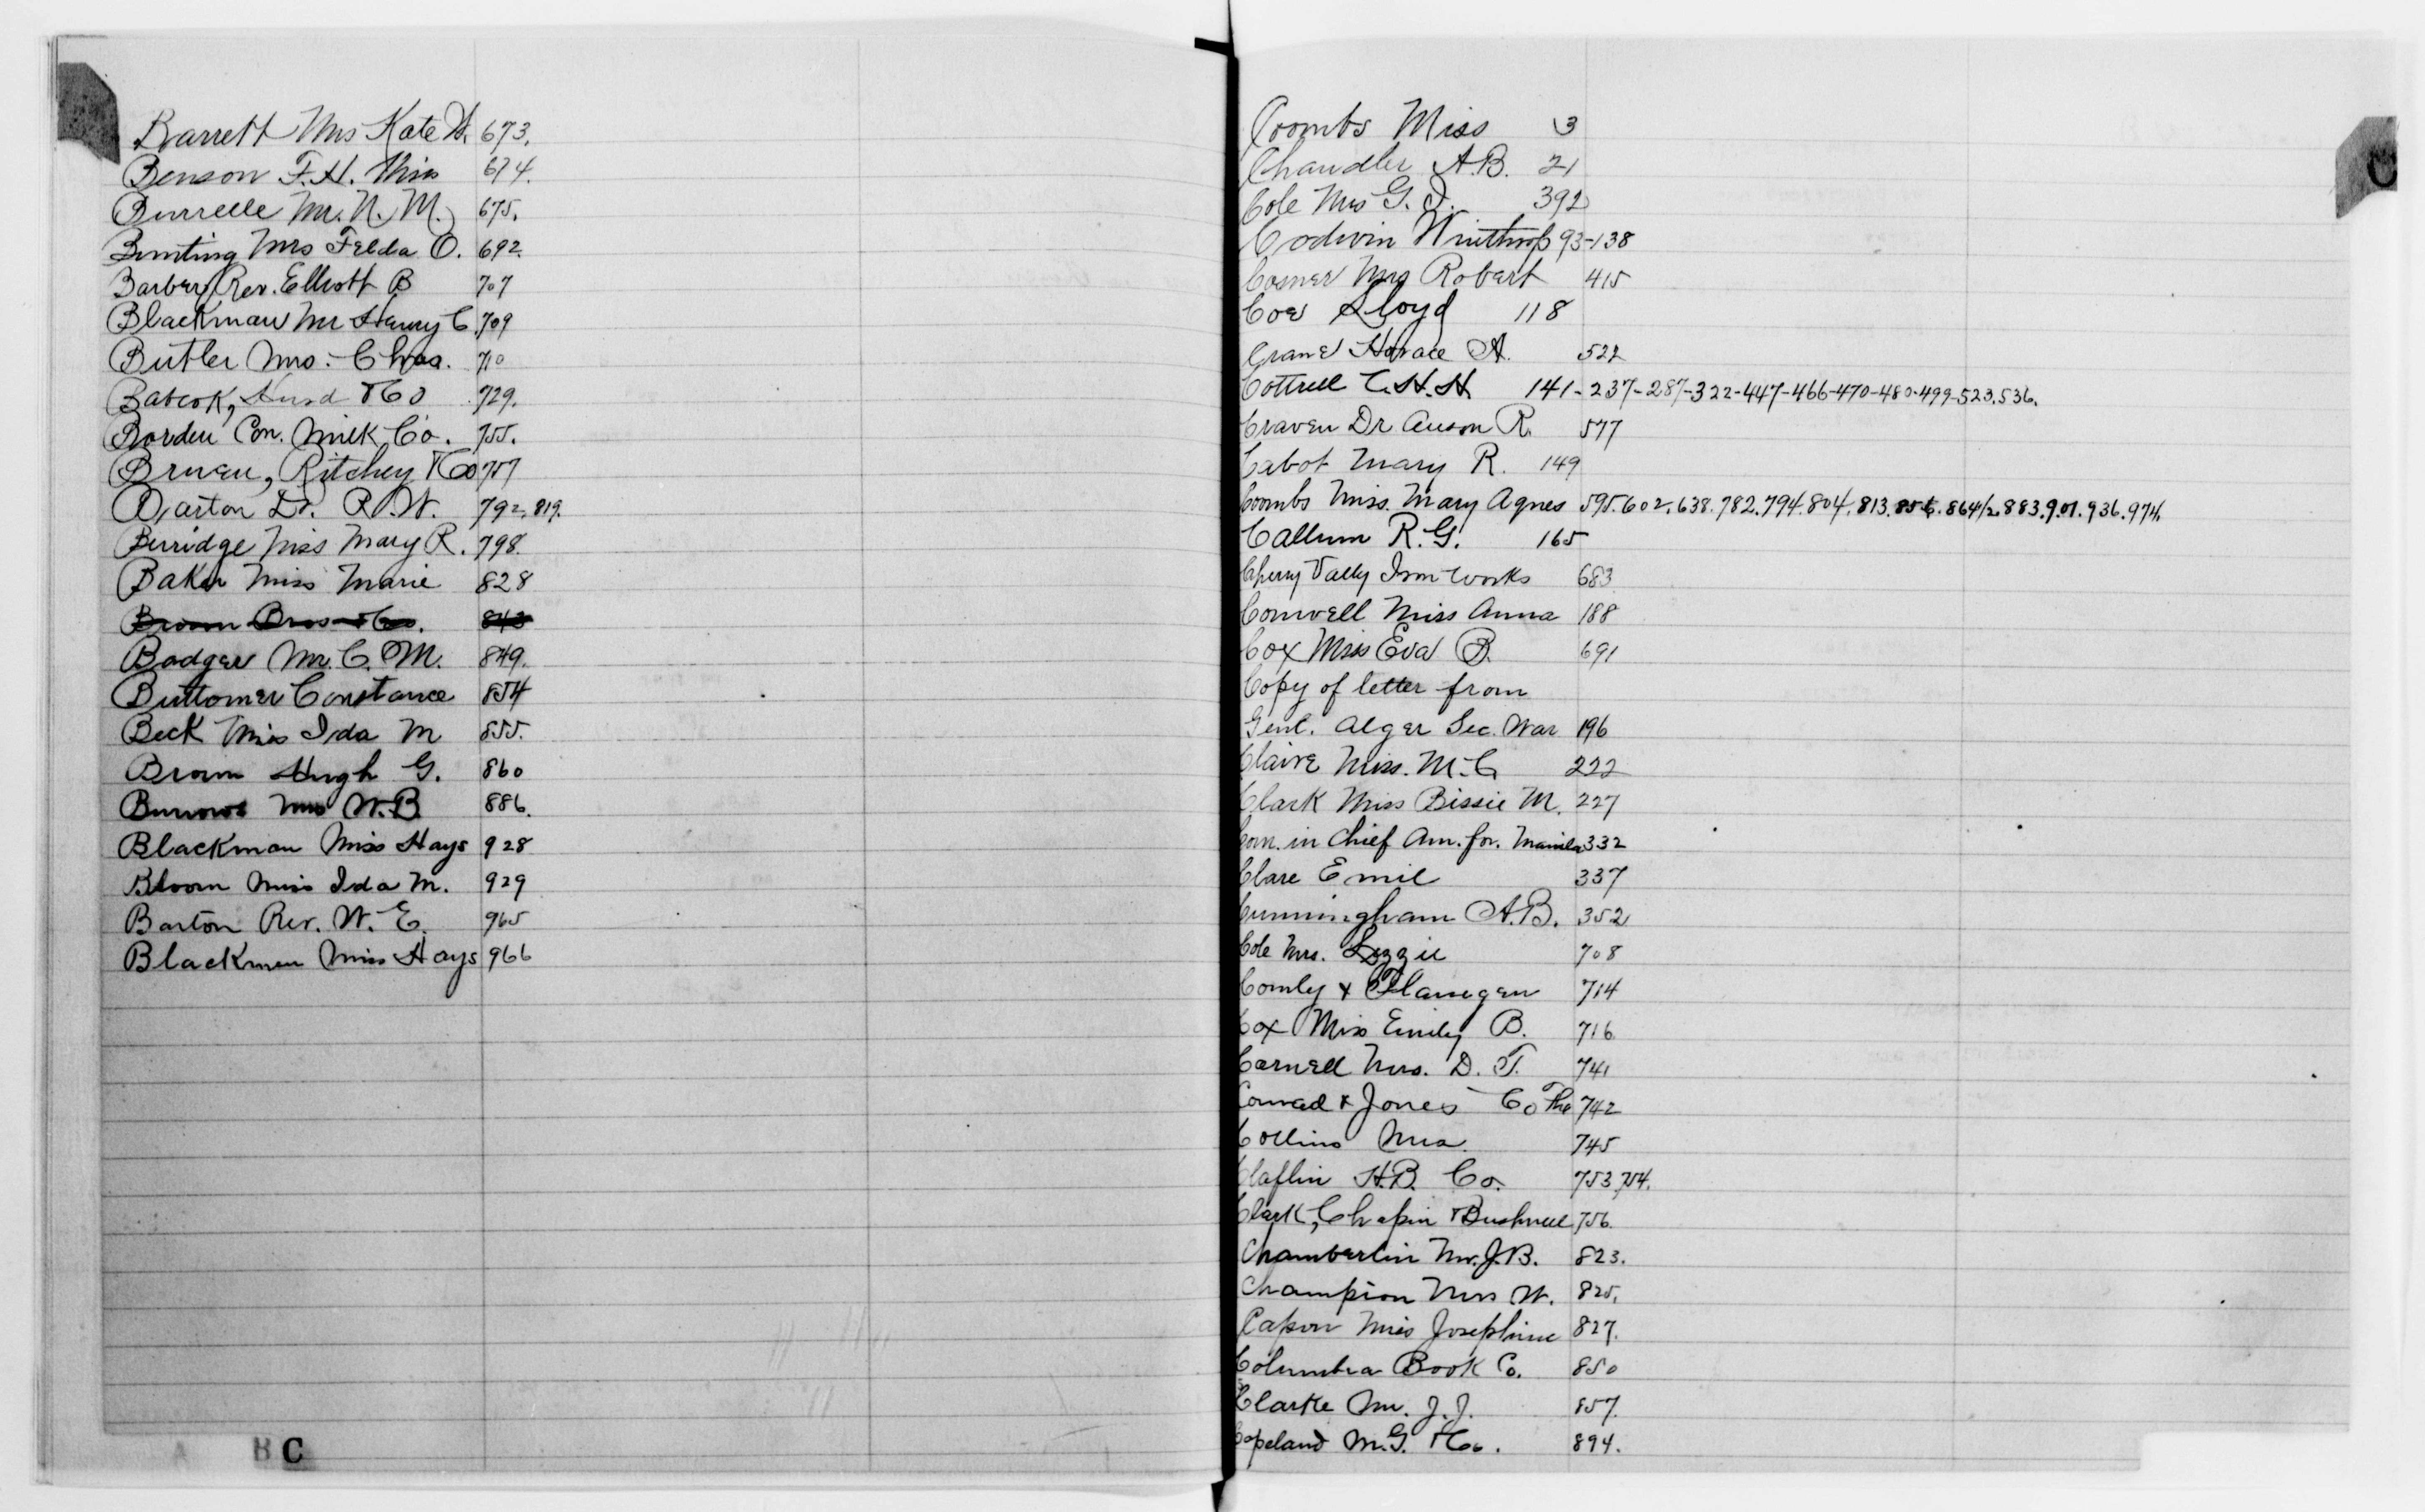 Barrett Mrs Kate W. 673.
Benson F. H. Miss 674.
Burrelle Mr. N. M. 675.
Bunting Mrs Felda O. 692.
Barber Rev. Elliott B 707
Blackman Mr Henry C. 709
Butler Mrs. Chas. 710
Babcok, Hurd & Co 729.
Borden Con. Milk Co. 755.
Bruen, Ritchey & Co 757
Barton Dr. R. W. 792, 819.
Berridge Miss Mary R. 798.
Baker Miss Marie 828
Brown Bros & Co. 843
Badger Mr. C. M. 849.
Buttomer Constance 854
Beck Miss Ida M 855.
Brown Hugh G. 860
Burrows Mrs W. B. 886.
Blackman Miss Hays 928
Bloom Miss Ida M. 929
Barton Rev. W. E. 965
Blackman Miss Hays 966
A B C
Coombs Miss 3
Chandler A. B. 21
Cole Mrs G. I. 392
Codwin Winthrop 93-138
Cosner Mrs Robert 415
Coe Lloyd 118
Crane Horace A. 522
Cottrell C. H. H. 141-237-287-322-447-466-470-480-499-523.536.
Craven Dr Anson R. 577
Cabot Mary R. 149
Coombs Miss. Mary Agnes 595.602.638.782.794.804.813.856.864 1/2.883.901.936.974.
Callum R. G. 165
Cherry Vally Iron Works 683
Conwell Miss Anna 188
Cox Miss Eva B. 691
Copy of letter from
Genl. Alger Sec. War 196
Claire Miss. M. C. 222
Clark Miss Bissie M. 227
Com. in Chief Am. for. Manila 332
Clare Emil 337
Cunningham A. B. 352
Cole Mrs. Lizzie 708
Comly & Flanigen 714
Cox Miss Emily B. 716
Carnell Mrs. D. T. 741
Conrad & Jones Co The 742
Collins Mrs. 745
Claflin H. B. Co. 753 754.
Clark, Chapin & Bushnell 756.
Chamberlin Mr. J. B. 823.
Champion Mrs W. 825.
Capon Miss Josephine 827.
Columbia Book Co. 850
Clarke Mr. J. J. 857.
Copeland M. G. & Co. 894.
C